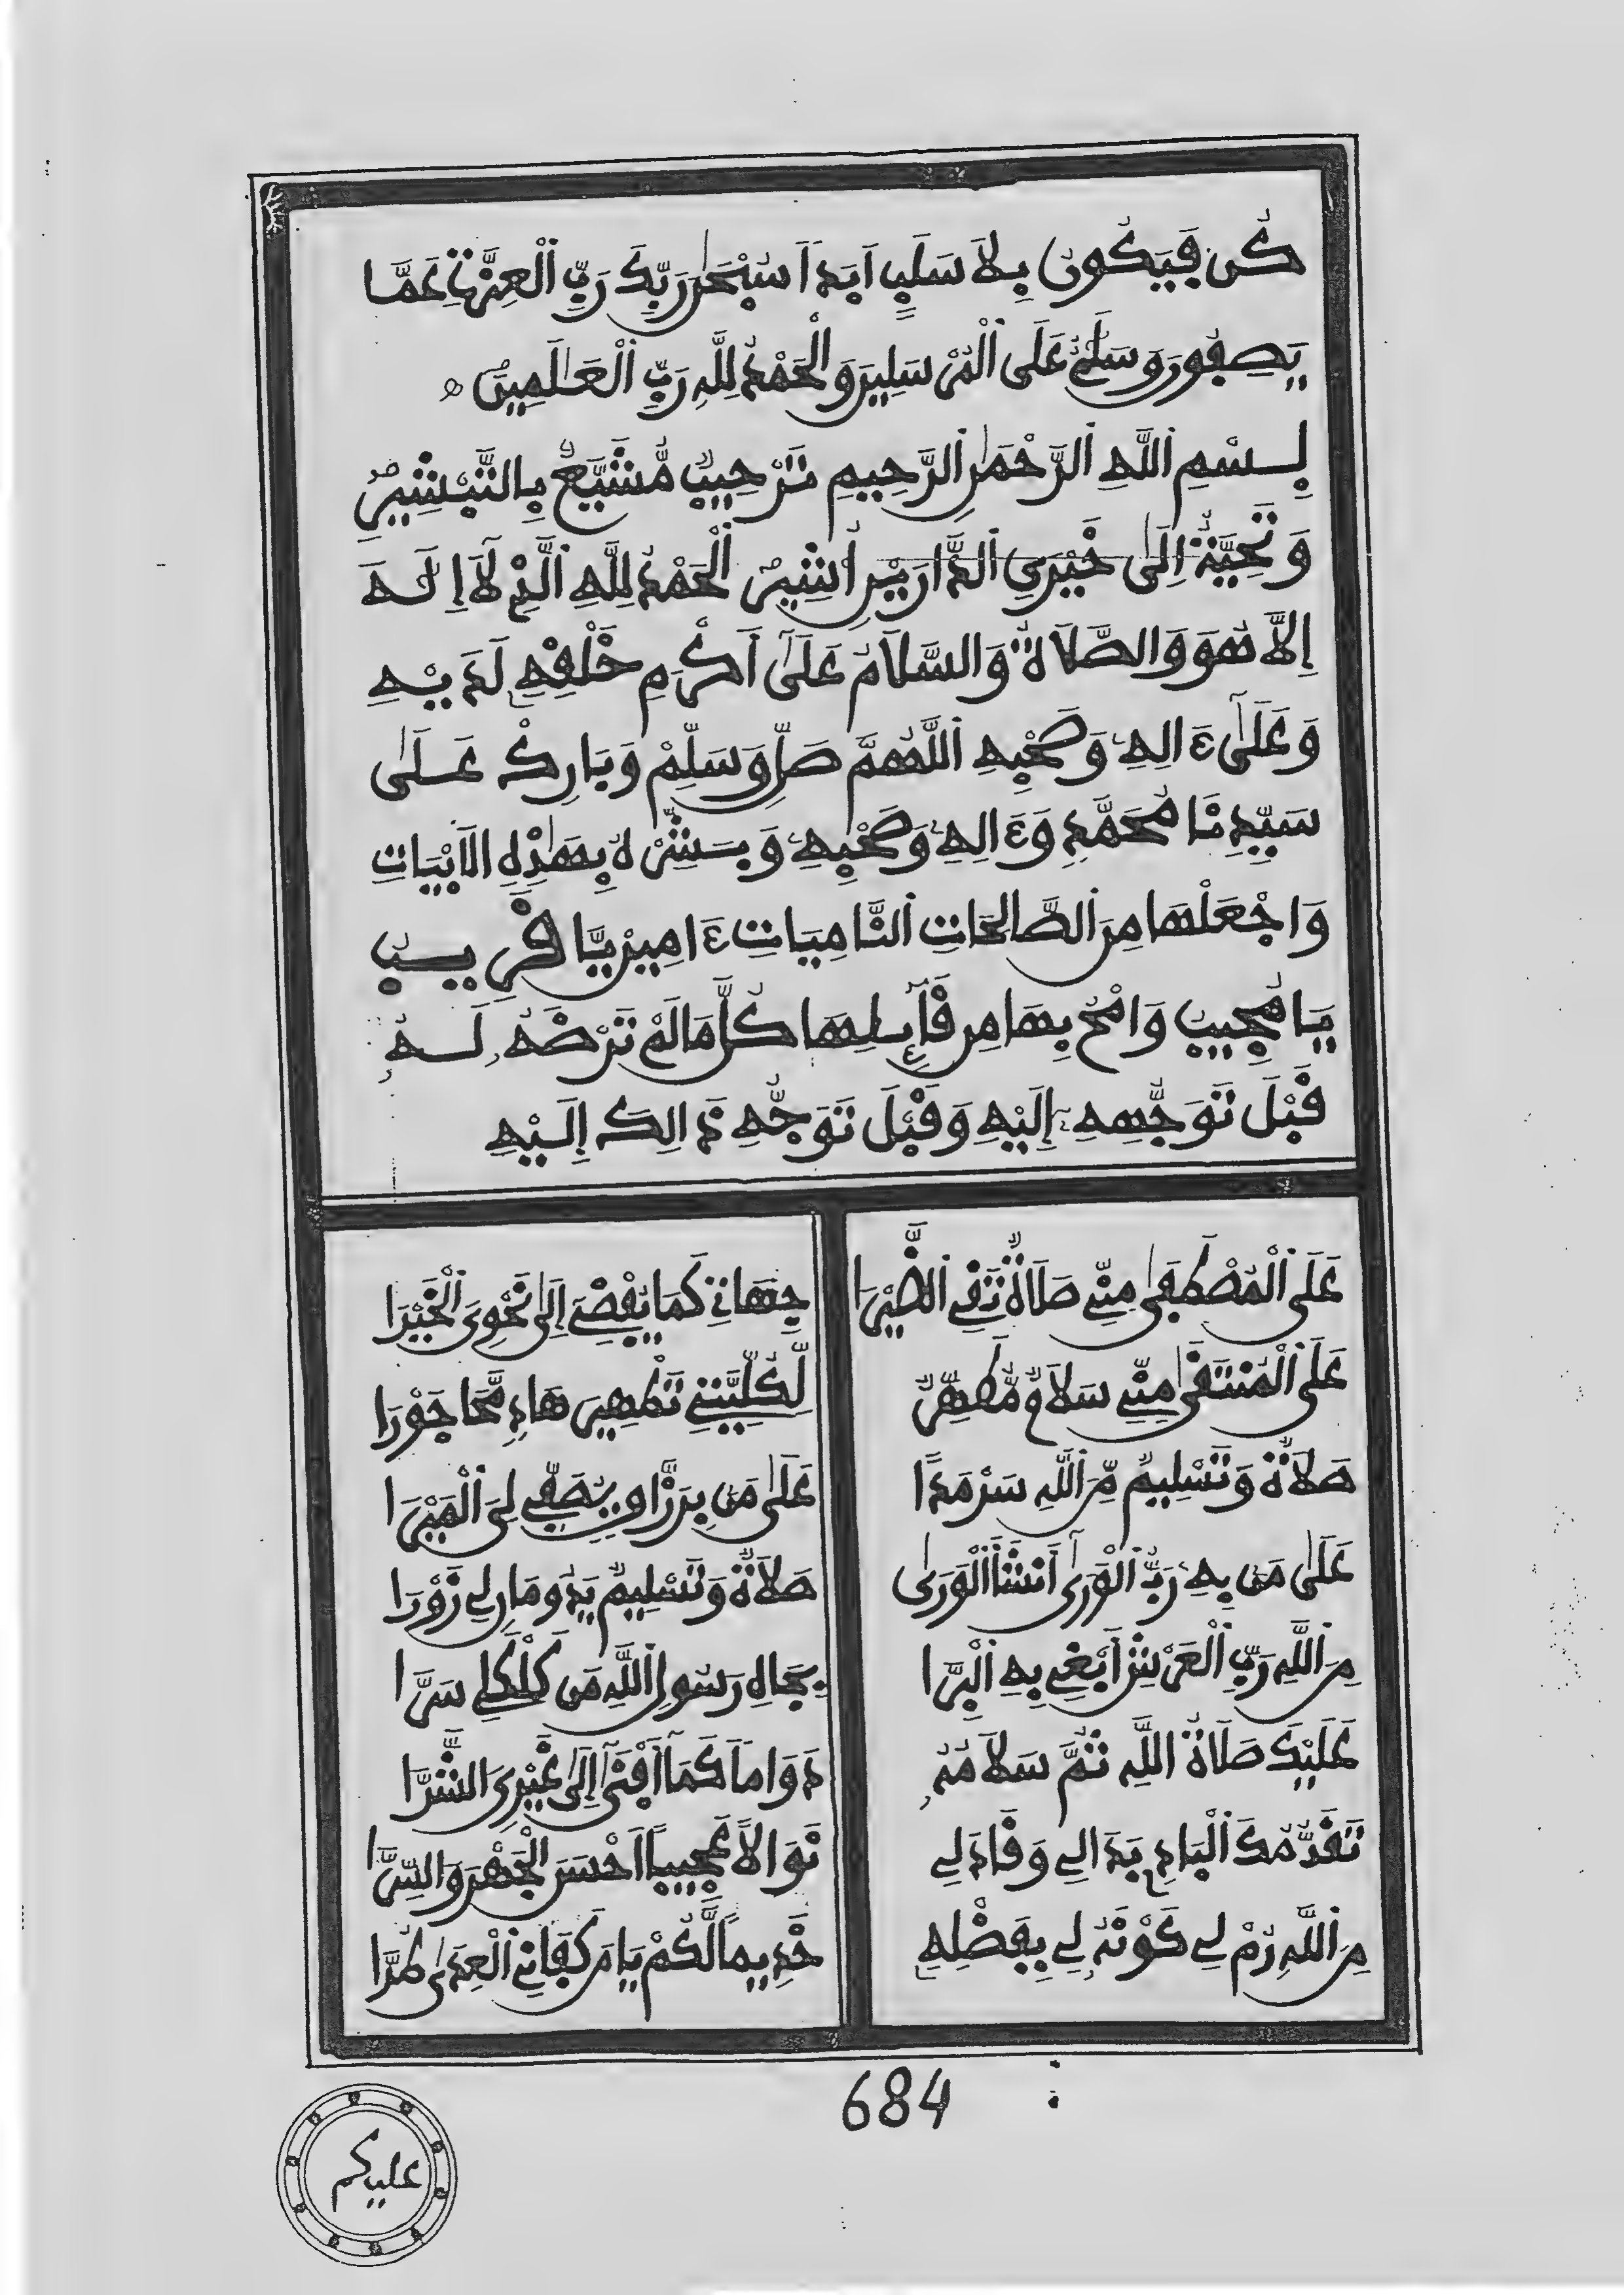 كُن فَيَكُونُ بِلاَ سَلَبٍ اَبَدًا سُبْحَٰنَ رَبِّكَ رَبِّ الْعِزَّةِ عَمَّا
يَصِفُونَ وَسَلَٰمٌ عَلَى الْمُرْسَلِينَ وَالْحَمْدُ لِلَّهِ رَبِّ الْعَٰلَمِينَ
بِسْمِ اللَّهِ الرَّحْمَٰنِ الرَّحِيمِ تَرْحِيبٌ مُّشَيَّعٌ بِالتَّبْشِيرِ
وَتَحِيَّةٌ اِلَىٰ خَيْرَيِ الدَّارَيْنِ أُشِيرُ الْحَمْدُ لِلَّهِ الَّذِي لَآ إِلَٰهَ
إِلاَّ هُوَ وَالصَّلاَةُ وَالسَّلاَمُ عَلَىٰ أَكْرَمِ خَلْقِهِ لَدَيْهِ
وَعَلَىٰ ءَالِهِ وَصَحْبِهِ اللَّهُمَّ صَلِّ وَسَلِّمْ وَبَارِكْ عَلَىٰ
سَيِّدِنَا مُحَمَّدٍ وَءَالِهِ وَصَحْبِهِ وَبَشِّرْهُ بِهَٰذِهِ الاَبْيَاتِ
وَاجْعَلْهَا مِنَ الصَّالِحَاتِ النَّامِيَاتِ ءَامِين يَا قَرِيبُ
يَا مُجِيبُ وَامْحُ بِهَا مِن قَآئِلِهَا كُلَّ مَا لَمْ تَرْضَهُ لَهُ
قَبْلَ تَوَجُّهِهِ إِلَيْهِ وَقَبْلَ تَوَجُّهِ ذَالِكَ إِلَيْهِ
عَلَى الْمُصْطَفَىٰ مِنِّي صَلَاةٌ تَقِي الضَّيْرَا جِهَاتِي كَمَا يُفْضِي إِلَىٰ نَحْوِيَ الْخَيْرَا
عَلَى الْمُنتَقَىٰ مِنِّي سَلاَمٌ مُّطَهِّرٌ لِّكُلِّيَّتِي تَطْهِيرَ هَادٍ مَّحَا جَوْرَا
صَلاَةٌ وَتَسْلِيمٌ مِّنَ اللَّهِ سَرْمَدًا عَلَىٰ مَن بِرَزَّاقٍ يُصَفِّي لِيَ الْمَيْرَا
عَلَىٰ مَن بِهِ رَبُّ الْوَرَىٰ أَنشَأَ الْوَرَىٰ صَلاَةٌ وَتَسْلِيمٌ يَدُومَانِ لِي زَوْرَا
مِنَ اللَّهِ رَبِّ الْعَرْشِ أَبْغِي بِهِ الْبِرَّا بِجَاهِ رَسُولِ اللَّهِ مَن كُلَّكُلِّي سَرَّا
عَلَيْكَ صَلَاةُ اللَّهِ ثُمَّ سَلاَمُهُ دَوَامًا كَمَا أَبْقَىٰ إِلَىٰ غَيْرِيَ الشَّرَّا
تَقَدُّمُكَ الْبَادِي بَدَا لِي وَقَادَ لِي نَوَالاً عَجِيبًا اَحْسَنَ الْجَهْرَ وَالسِّرَّا
مِنَ اللَّهِ رُمْ لِي كَوْنَهُ لِي بِفَضْلِهِ خَدِيمًا لَّكُمْ يَا مَن كَفَانِي الْعِدَىٰ طُرَّا
684
عليكم